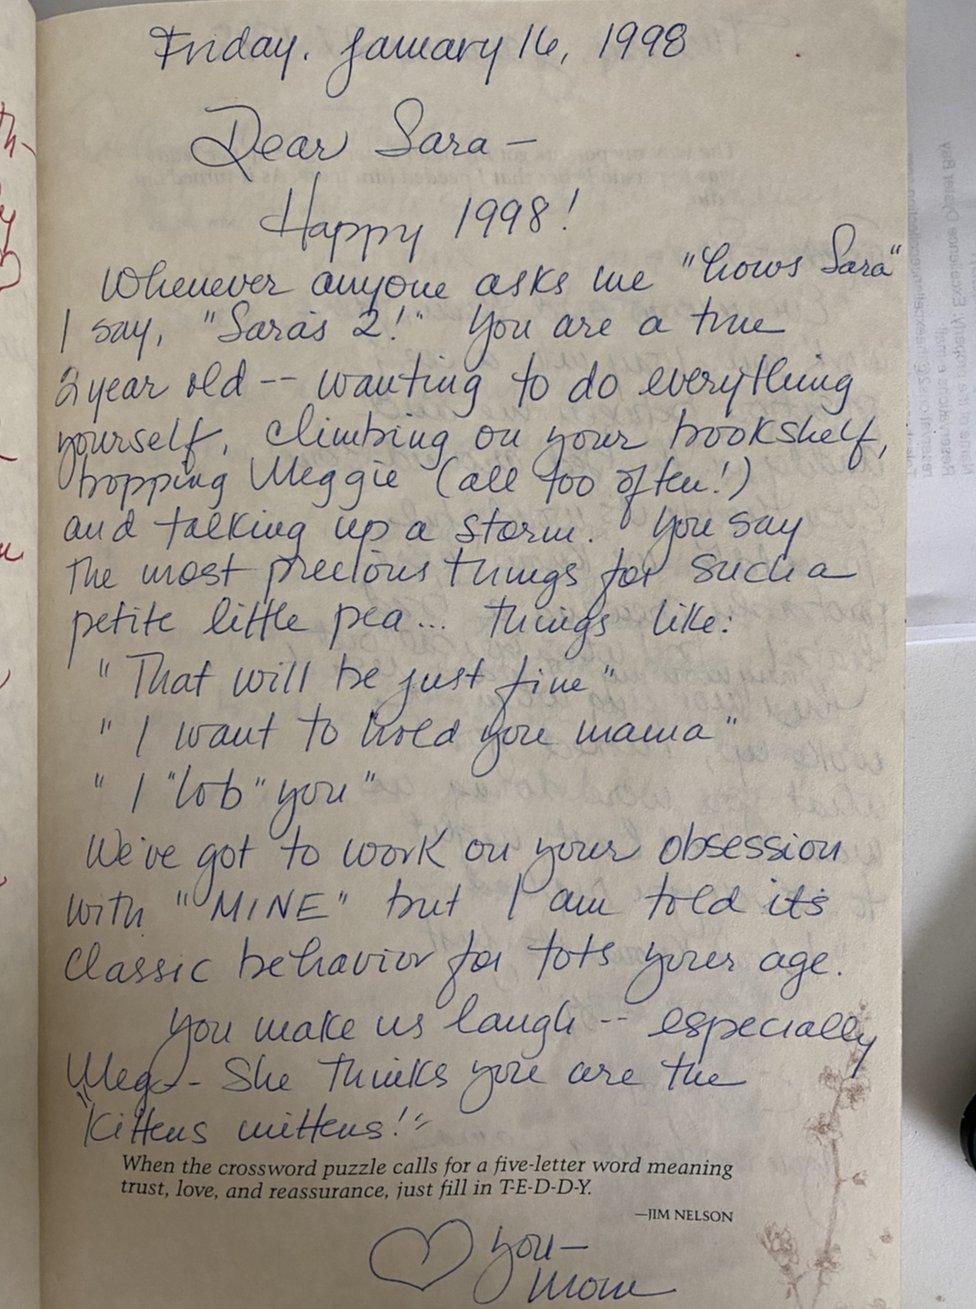 Friday, January 16, 1998
Dear Sara —
Happy 1998!
Whenever anyone asks me "hows Sara"
I say, "Sara's 2!" You are a true
2 year old -- wanting to do everything
yourself, climbing on your bookshelf,
bopping Meggie (all too often!)
and talking up a storm. You say
the most precious things for such a
petite little pea... things like:
"That will be just fine"
"I want to hold you mama"
"I "lob" you"
We've got to work on your obsession
with "MINE" but I am told it's
classic behavior for tots your age.
You make us laugh -- especially
Meg - She thinks you are the
"Kittens mittens!"
When the crossword puzzle calls for a five-letter word meaning
trust, love, and reassurance, just fill in T-E-D-D-Y.
—JIM NELSON
♡ you —
Mom